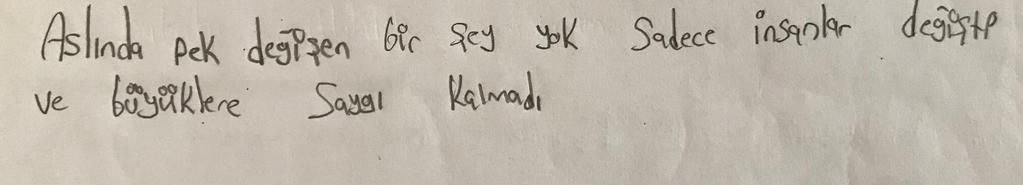 Aslında pek değişen bir şey yok Sadece insanlar değişti
ve büyüklere Saygı Kalmadı